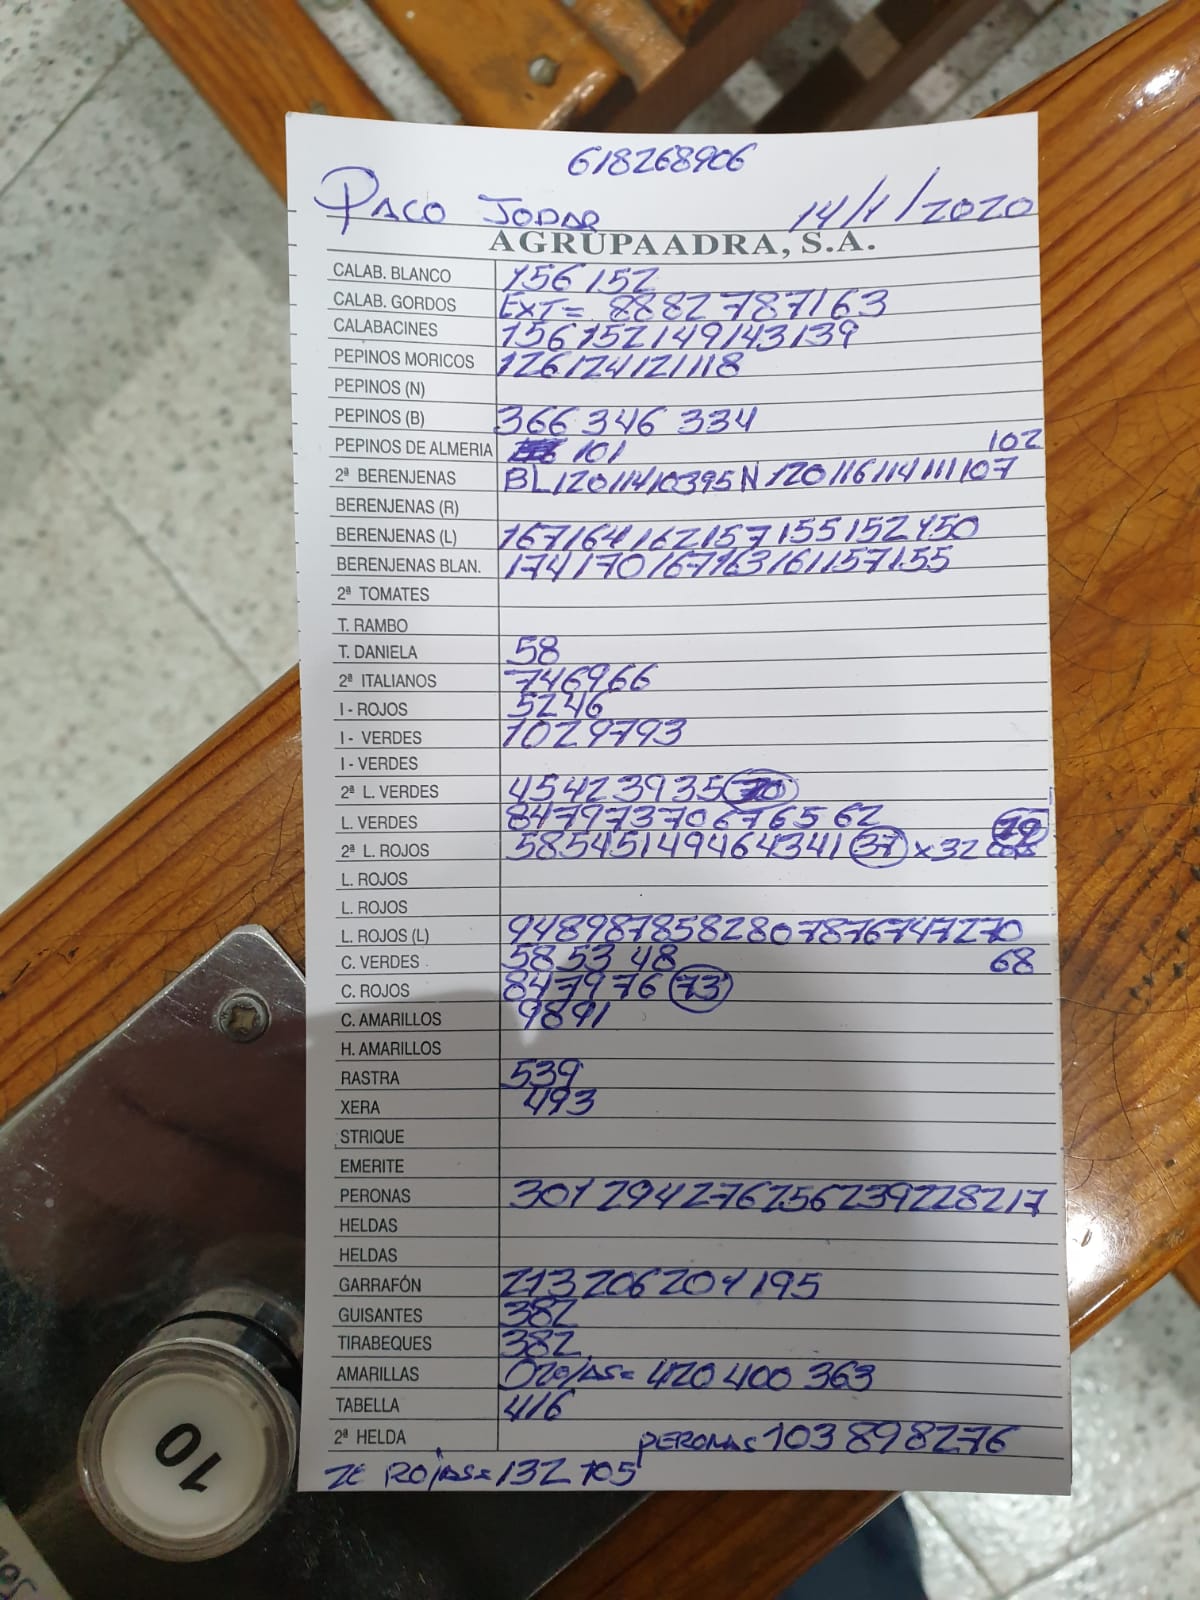 618268906
PACO JODAR 14/1/2020
AGRUPAADRA, S.A.
CALAB. BLANCO 156 152
CALAB. GORDOS EXT= 8882787163
CALABACINES 156152149143139
PEPINOS MORICOS 126124121118
PEPINOS (N)
PEPINOS (B) 366 346 334
PEPINOS DE ALMERIA 101 102
2ª BERENJENAS BL12011410395 N 120116114111107
BERENJENAS (R)
BERENJENAS (L) 167164162157155152150
BERENJENAS BLAN. 174170167163161157155
2ª TOMATES
T. RAMBO
T. DANIELA 58
2ª ITALIANOS 746966
I - ROJOS 5246
I - VERDES 1029793
I - VERDES
2ª L. VERDES 45423935 70
L. VERDES 84797370676562
2ª L. ROJOS 58545149464341 37 x32
L. ROJOS
L. ROJOS
L. ROJOS (L) 9489878582807876747270
C. VERDES 58 53 48 68
C. ROJOS 847976 73
C. AMARILLOS 9891
H. AMARILLOS
RASTRA 539
XERA 493
STRIQUE
EMERITE
PERONAS 301294276256239228217
HELDAS
HELDAS
GARRAFÓN 213 206 201 195
GUISANTES 382
TIRABEQUES 382
AMARILLAS 420 400 363
TABELLA 416
2ª HELDA PERONAS 103 898276
ROJAS= 132 105
10